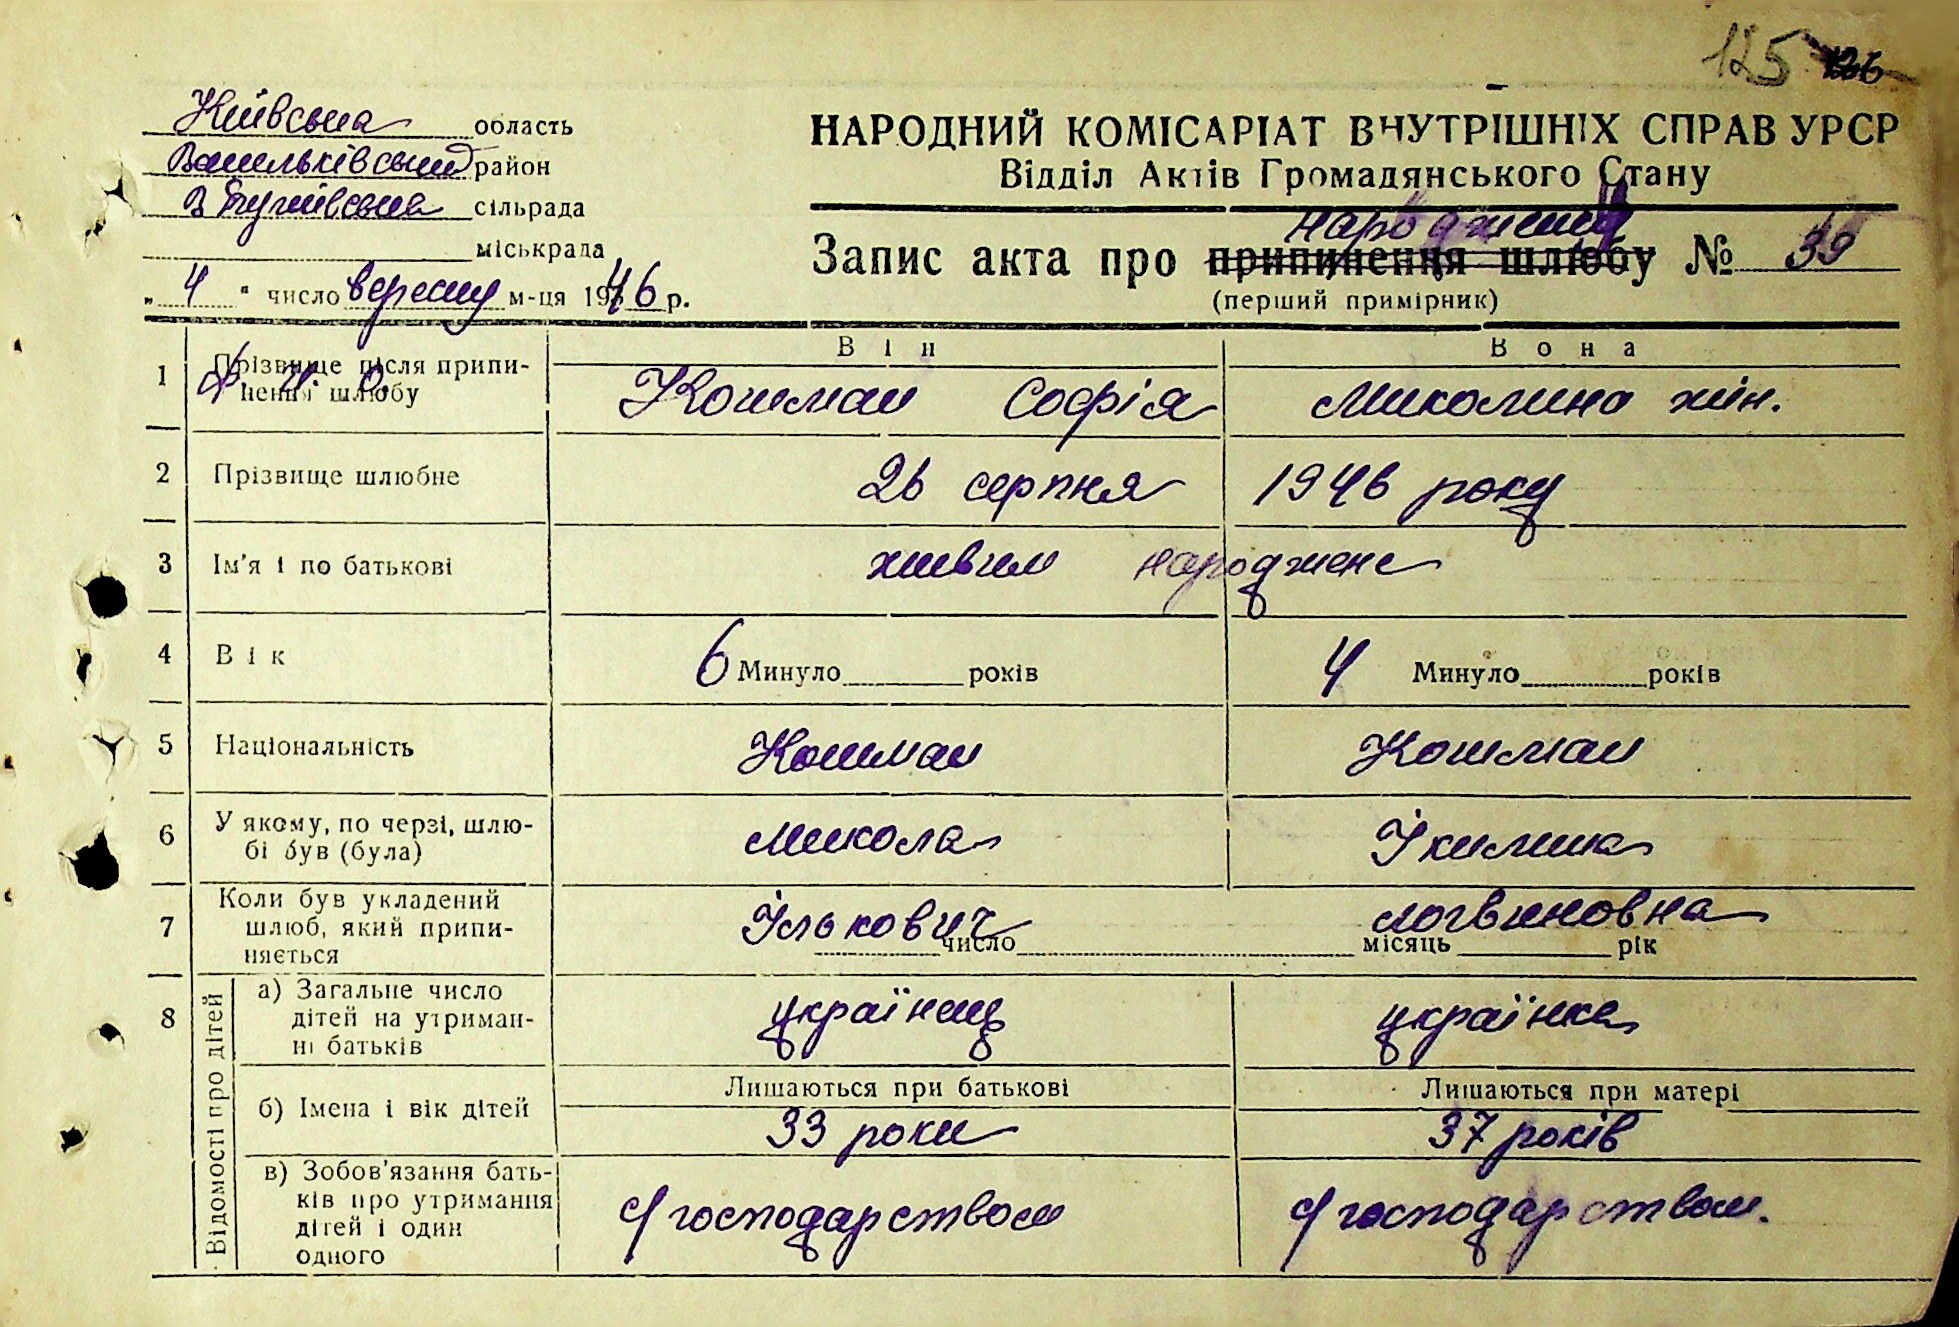 125 126
Київська область
Васильківський район
В Бугаївська сільрада
міськрада
„ 4 " число вересня м-ця 1946 р.
НАРОДНИЙ КОМІСАРІАТ ВНУТРІШНІХ СПРАВ УРСР
Відділ Актів Громадянського Стану
народження
Запис акта про припинення шлюбу № 39
(перший примірник)
Він Вона
1 Прізвище після припинення шлюбу ф. и. о. Кошман Софія Миколина жін.
2 Прізвище шлюбне 26 серпня 1946 року
3 Ім'я і по батькові живим народжене
4 Вік 6 Минуло років 4 Минуло років
5 Національність Кошман Кошман
6 У якому, по черзі, шлю-
бі був (була) Микола Їкилина
7 Коли був укладений
шлюб, який припи-
няється Ількович число логвиновна місяць рік
8 Відомості про дітей
а) Загальне число
дітей на утриман-
ні батьків українец українка
Лишаються при батькові Лишаються при матері
б) Імена і вік дітей 33 роки 37 років
в) Зобов'язання бать-
ків про утримання
дітей і один
одного с/господарством с/господарством.